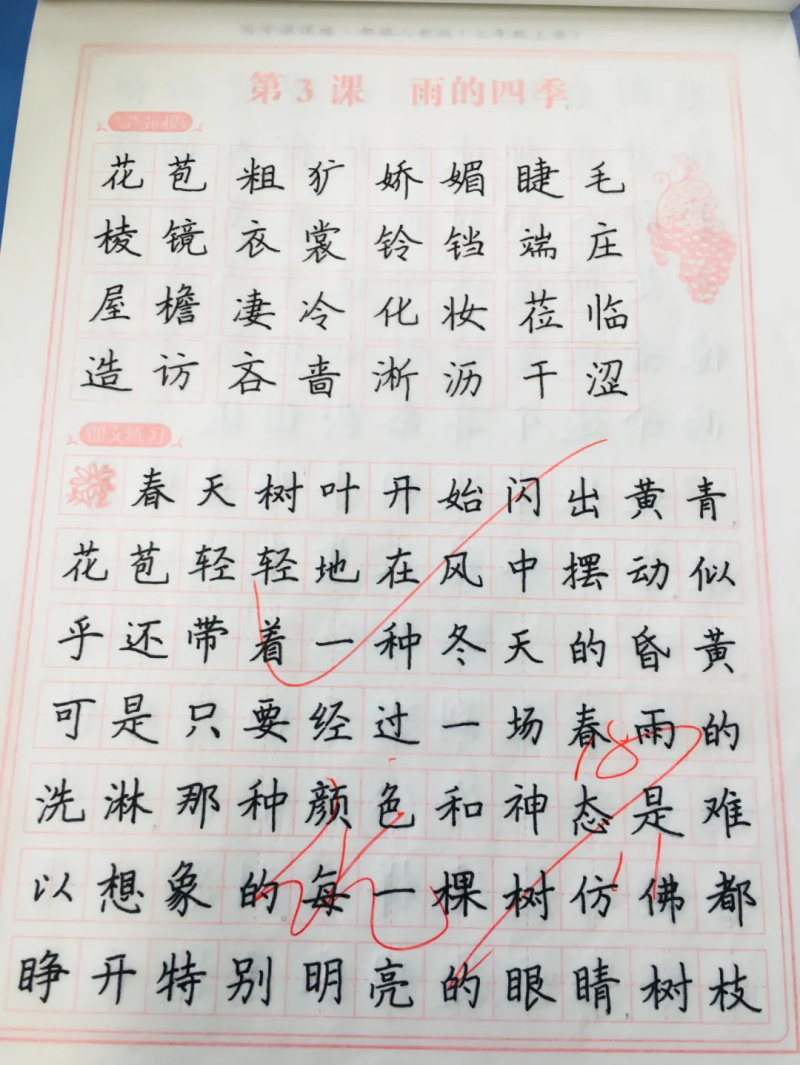 第3课 雨的四季
花苞 粗犷 娇媚 睫毛
棱镜 衣裳 铃铛 端庄
屋檐 凄冷 化妆 莅临
造访 吝啬 淅沥 干涩
课文练习
春天树叶开始闪出黄青
花苞轻轻地在风中摆动似
乎还带着一种冬天的昏黄
可是只要经过一场春雨的
洗淋那种颜色和神态是难
以想象的每一棵树仿佛都
睁开特别明亮的眼睛树枝